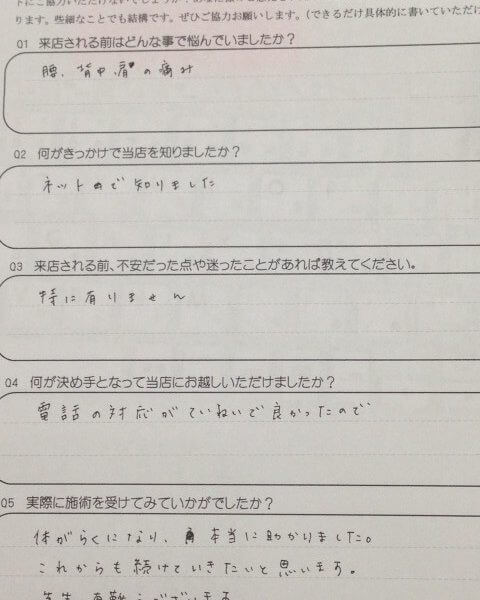 ります。些細なことでも結構です。ぜひご協力お願いします。(できるだけ具体的に書いていただけ
Q1 来店される前はどんな事で悩んでいましたか？
腰、背中、肩の痛み
Q2 何がきっかけで当店を知りましたか？
ネットので知りました
Q3 来店される前、不安だった点や迷ったことがあれば教えてください。
特に有りません
Q4 何が決め手となって当店にお越しいただけましたか？
電話の対応がていねいで良かったので
Q5 実際に施術を受けてみていかがでしたか？
体がらくになり、本当に助かりました。
これからも続けていきたいと思います。